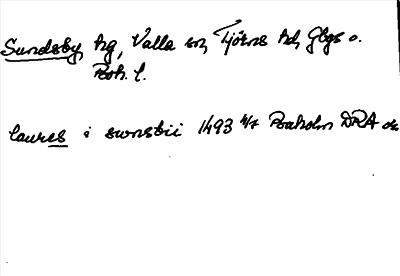 Sundsby, hg, Valla sn, Tjörns hd, Gbgs o.
Boh. l.
laures i swnsbii 1493 4/7 Baaholm DRA or.